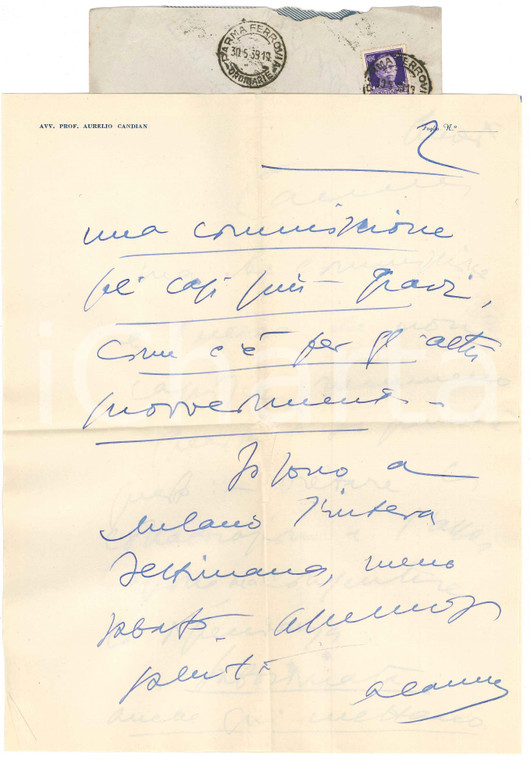 PARMA FERROVIA
30.5.39.19
ORDINARIE
AVV. PROF. AURELIO CANDIAN
Foglio N.°
2
una commissione
pei casi più gravi,
come c'è per gli altri
provvedimenti.
Io sono a
Milano l'intera
settimana, meno
sabato.
saluti
iCharta